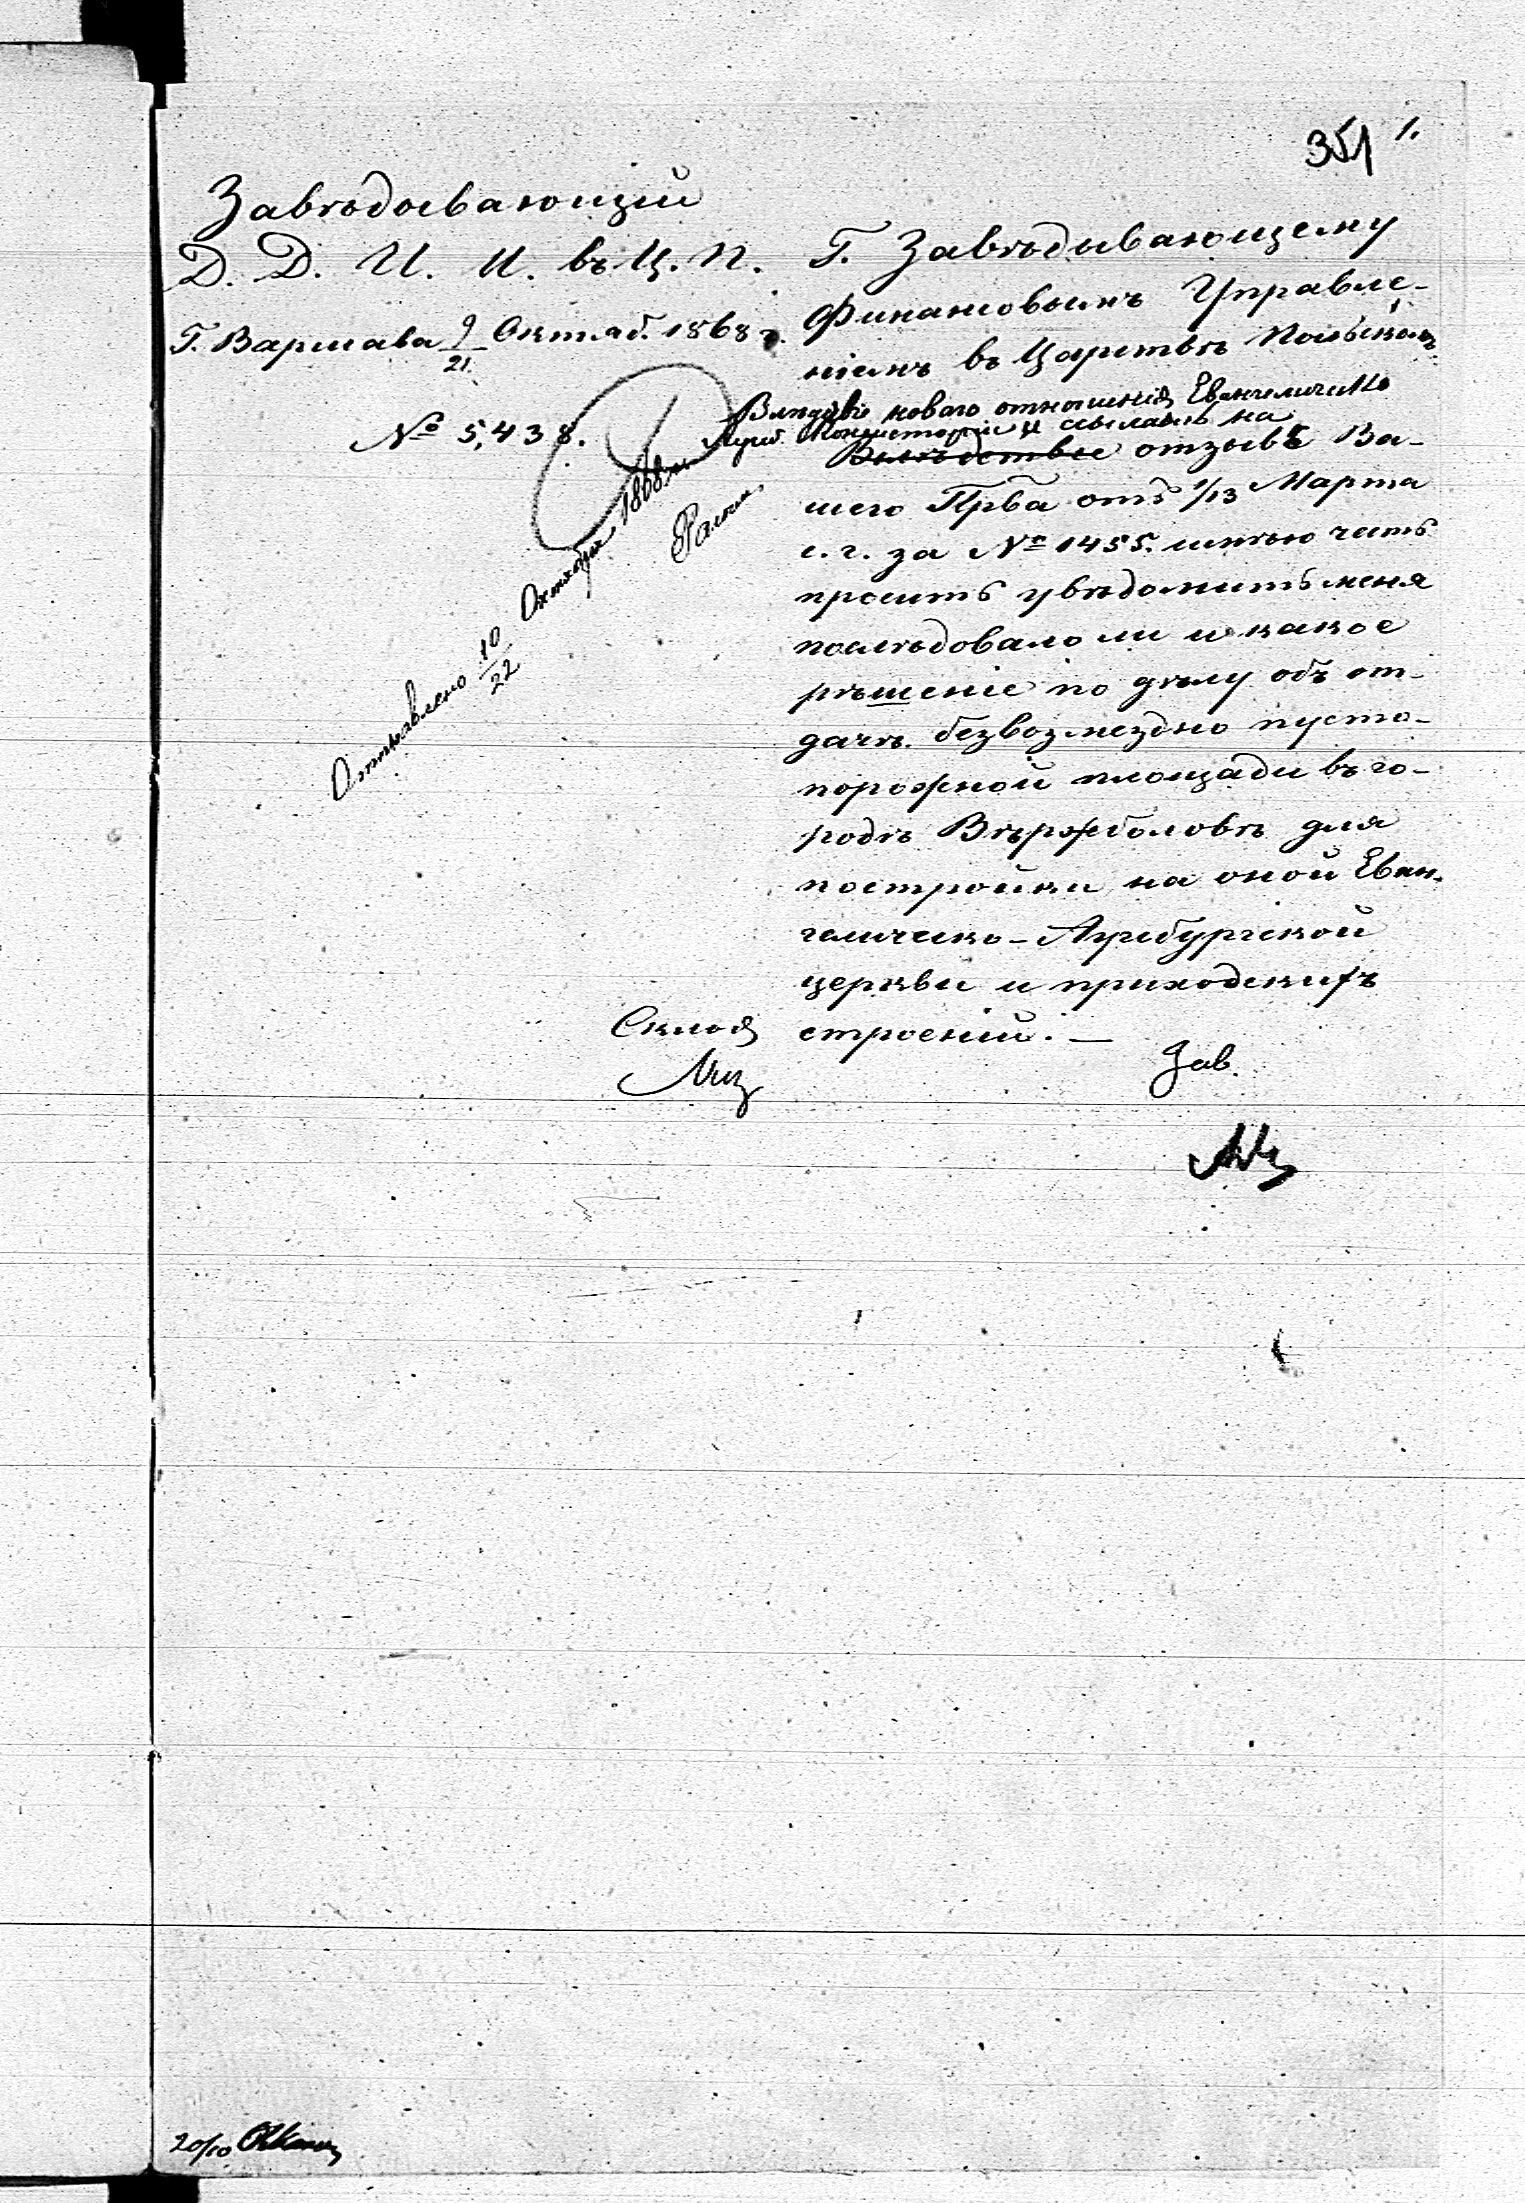 351
1.
Завѣдывающій
Д. Д. И. И. въ Ц. П.
Г. Варшава 9/21 Октяб. 1868 г.
№ 5,438.
Отправлено 10/22 Октября 1868 г.
Г. Завѣдывающему
Финансовымъ Управле-
ніемъ въ Царствѣ Польскомъ
Вслѣдствіе новаго отношенія Евангеличеко
Аугсб. Консисторіи и ссылаясь на
Вслѣдствіе отзывъ Ва-
шего Прва отъ 1/13 Марта
с. г. за № 1455. имѣю честь
просить увѣдомить меня
послѣдовало ли и какое
рѣшеніе по дѣлу объ от-
дачѣ безвозмездно пусто-
порожной площади въ го-
родѣ Вержболовѣ для
постройки на оной Еван-
геличеко-Аугсбургской
церкви и приходскихъ
строеній. —
Зав.
20/10